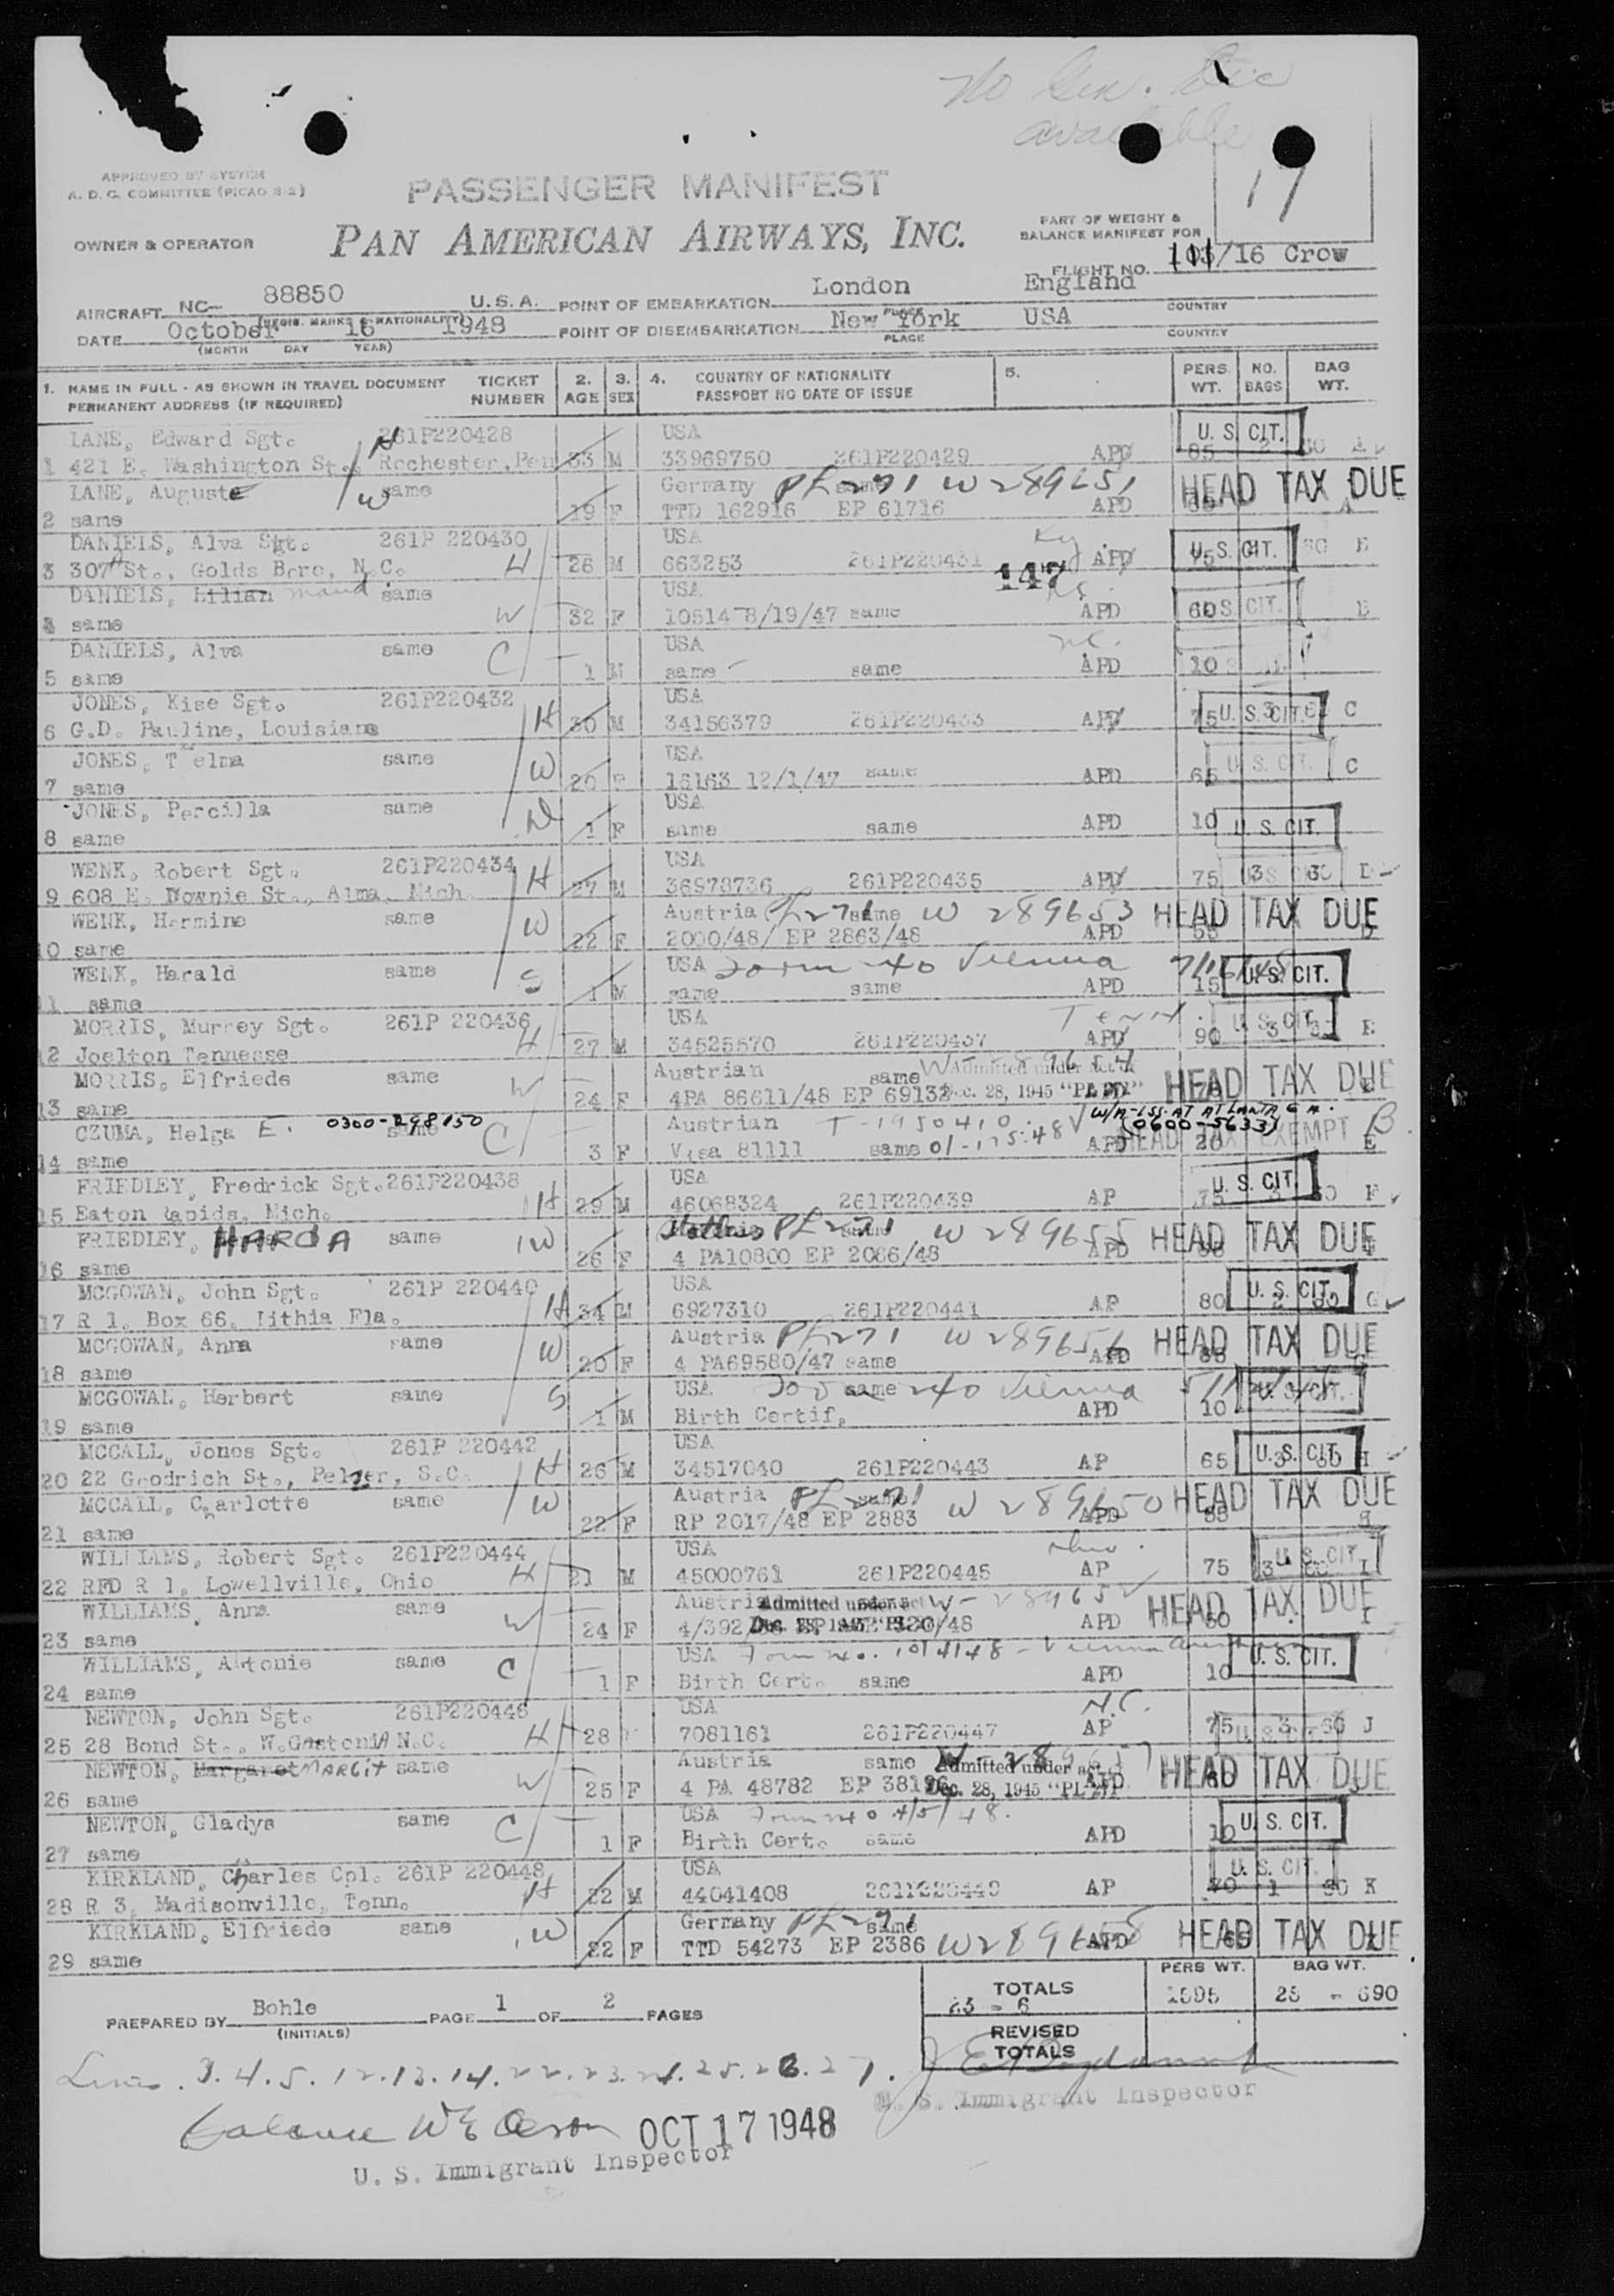 No Gen. Dec
available
APPROVED BY SYSTEM
A. D. C. COMMITTEE (PICAO S-2)
PASSENGER MANIFEST
17
OWNER & OPERATOR
PAN AMERICAN AIRWAYS, INC.
PART OF WEIGHT &
BALANCE MANIFEST FOR
FLIGHT NO. /16 Crow
AIRCRAFT NC- 88850 U.S.A. POINT OF EMBARKATION London England
(REGIS. MARKS & NATIONALITY) PLACE COUNTRY
DATE October 16 1948 POINT OF DISEMBARKATION New York USA
(MONTH DAY YEAR) PLACE COUNTRY
1. NAME IN FULL - AS SHOWN IN TRAVEL DOCUMENT TICKET 2. 3. 4. COUNTRY OF NATIONALITY 5. PERS. NO. BAG
PERMANENT ADDRESS (IF REQUIRED) NUMBER AGE SEX PASSPORT NO DATE OF ISSUE WT. BAGS WT.
LANE, Edward Sgt. 261P220428 USA U. S. CIT.
1 421 E. Washington St., Rochester, Pen 33 M 33969750 261P220429 APD 85 2 60 A
LANE, Auguste same W Germany PL 271 W 289651 HEAD TAX DUE
2 same 19 F TTD 162916 EP 61716 APD A
DANIELS, Alva Sgt. 261P 220430 USA Ky. U. S. CIT.
3 307 St., Golds Boro, N.C. H 26 M 663253 261P220431 APD 75 60 B
147
DANIELS, Lilian Maud same USA U. S. CIT.
4 same W 32 F 10514 8/19/47 same APD 60 B
DANIELS, Alva same C USA N.C.
5 same 1 M same same APD 10
JONES, Kise Sgt. 261P220432 USA
6 G.D. Pauline, Louisiana H 30 M 34156379 261P220433 APD 75 U. S. CIT. C
JONES, Thelma same W USA U. S. CIT.
7 same 20 F 16163 12/1/47 same APD 65 C
JONES, Percilla same D USA
8 same 1 F same same APD 10 U. S. CIT.
WENK, Robert Sgt. 261P220434 USA
9 608 E. Downie St., Alma, Mich. H 27 M 36978736 261P220435 APD 75 3 60 D
WENK, Hermine same W Austria PL 271 same W 289653 HEAD TAX DUE
10 same 22 F 2000/48/ EP 2863/48 APD D
WENK, Harald same S USA Form 240 Vienna U. S. CIT.
11 same 1 M same same APD 15
MORRIS, Murrey Sgt. 261P 220436 USA Tenn. U. S. CIT.
12 Joelton Tennesse H 27 M 34525570 261P220437 APD 90 3 E
MORRIS, Elfriede same Austrian same Admitted under act of HEAD TAX DUE
13 same W 24 F 4PA 86611/48 EP 69132 Dec. 28, 1945 "PL 271"
CZUMA, Helga E. 0300-298150 same C Austrian T-1950410 W/A-155 AT ATLANTA GA. (0600-5633) HEAD TAX EXEMPT B
14 same 3 F Visa 81111 same APD 20 E
FRIEDLEY, Fredrick Sgt. 261P220438 USA U. S. CIT.
15 Eaton Rapids, Mich. H 29 M 46068324 261P220439 AP 75 F
FRIEDLEY, same W PL 271 same W 289655 HEAD TAX DUE
16 same 26 F 4 PA10800 EP 2086/48 APD
MCGOWAN, John Sgt. 261P 220440 USA U. S. CIT.
17 R 1. Box 66. Lithia Fla. H 34 M 6927310 261P220441 AP 80 2 G
MCGOWAN, Anna same W Austria PL 271 W 289656 HEAD TAX DUE
18 same 20 F 4 PA69580/47 same APD
MCGOWAN, Herbert same S USA same 240 Vienna U. S. CIT.
19 same 1 M Birth Certif. APD 10
MCCALL, Jones Sgt. 261P 220442 USA U. S. CIT.
20 22 Goodrich St., Pelzer, S.C. H 26 M 34517040 261P220443 AP 65 H
MCCALL, Charlotte same W Austria PL 271 same W 289650 HEAD TAX DUE
21 same 22 F RP 2017/48 EP 2883 APD
WILLIAMS, Robert Sgt. 261P220444 USA Ohio. U. S. CIT.
22 RFD R 1, Lowellville, Ohio H 21 M 45000761 261P220445 AP 75 3 I
WILLIAMS, Anna same Austria Admitted under act W-289652 HEAD TAX DUE
23 same W 24 F APD
WILLIAMS, Antonie same C USA Vienna U. S. CIT.
24 same 1 F Birth Cert. same APD 10
NEWTON, John Sgt. 261P220446 USA N.C.
25 28 Bond St., W.Gastonia N.C. H 28 7081161 261P220447 AP 75 3 60 J
NEWTON, Margaret MARGIT same Austria same Admitted under act HEAD TAX DUE
26 same W 25 F 4 PA 48782 EP 38196 Dec. 28, 1945 "PL 271"
NEWTON, Gladys same C USA U. S. CIT.
27 same 1 F Birth Cert. same APD 10
KIRKLAND, Charles Cpl. 261P 220448 USA U. S. CIT.
28 R 3, Madisonville, Tenn. H 22 M 44041408 261P220449 AP 70 1 30 K
KIRKLAND, Elfriede same W Germany PL 271 same HEAD TAX DUE
29 same 22 F TTD 54273 EP 2386 W289658 APD 65
TOTALS PERS WT. BAG WT.
23 - 6 1895 23 - 690
REVISED
TOTALS
PREPARED BY Bohle PAGE 1 OF 2 PAGES
(INITIALS)
Lines 3.4.5.12.13.14.22.23.24.25.26.27.
U. S. Immigrant Inspector
balance OCT 17 1948
U. S. Immigrant Inspector